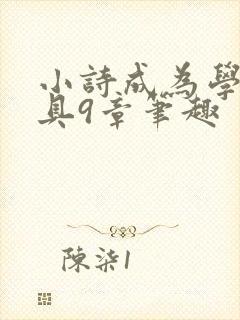 小詩成為學
具9章筆趣
陳柒1